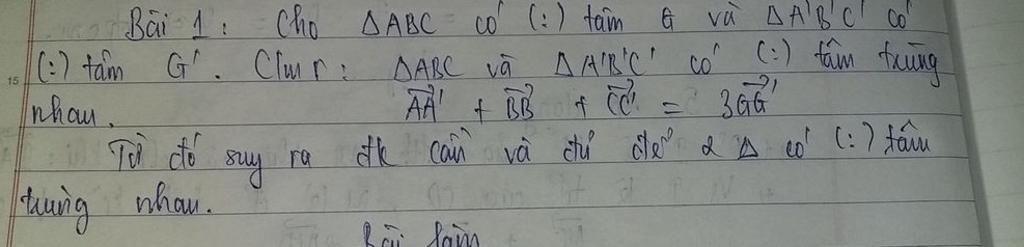 Bài 1: Cho ΔABC có (:) tâm G và ΔA'B'C' có
(:) tâm G'. Cmr: ΔABC và ΔA'B'C' có (:) tâm trùng
15
nhau. AA' + BB' + CC' = 3GG'
Từ đó suy ra đk cần và đủ để 2 Δ có (:) tâm
trùng nhau.
Bài làm